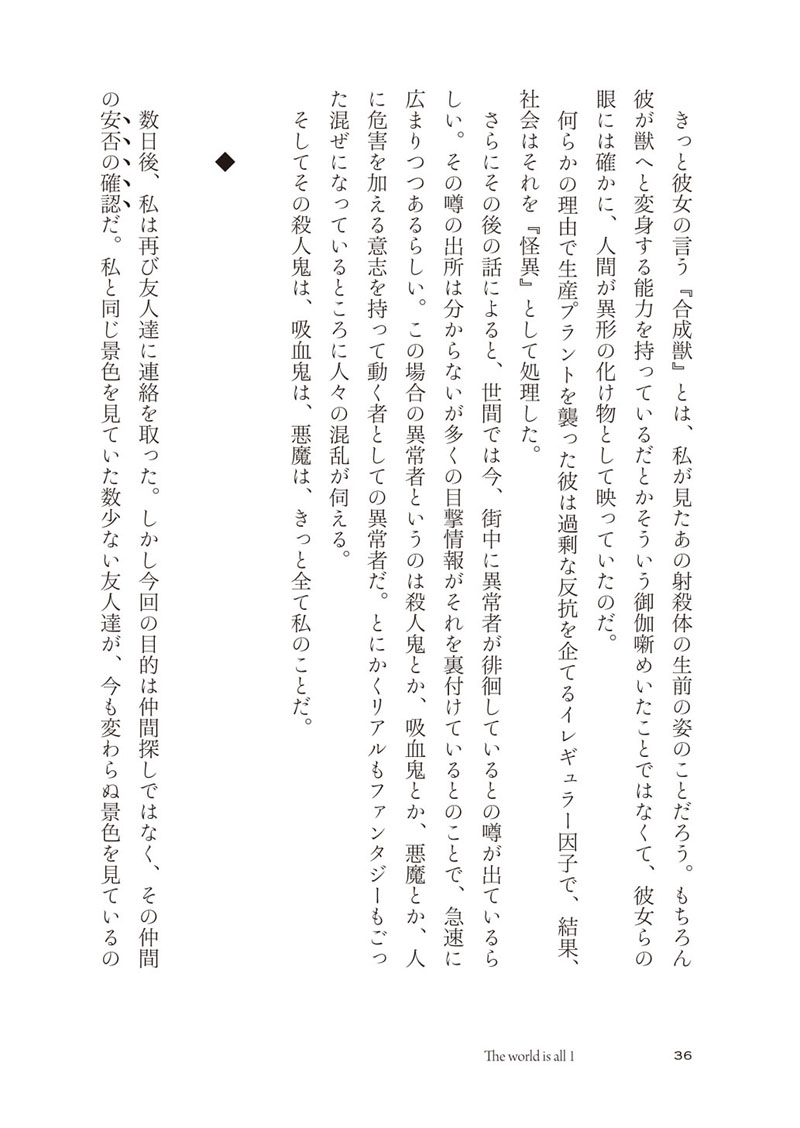 きっと彼女の言う『合成獣』とは、私が見たあの射殺体の生前の姿のことだろう。もちろん
彼が獣へと変身する能力を持っているだとかそういう御伽噺めいたことではなくて、彼女らの
眼には確かに、人間が異形の化け物として映っていたのだ。
何らかの理由で生産プラントを襲った彼は過剰な反抗を企てるイレギュラー因子で、結果、
社会はそれを『怪異』として処理した。
さらにその後の話によると、世間では今、街中に異常者が徘徊しているとの噂が出ているら
しい。その噂の出所は分からないが多くの目撃情報がそれを裏付けているとのことで、急速に
広まりつつあるらしい。この場合の異常者というのは殺人鬼とか、吸血鬼とか、悪魔とか、人
に危害を加える意志を持って動く者としての異常者だ。とにかくリアルもファンタジーもごっ
た混ぜになっているところに人々の混乱が伺える。
そしてその殺人鬼は、吸血鬼は、悪魔は、きっと全て私のことだ。
◆
数日後、私は再び友人達に連絡を取った。しかし今回の目的は仲間探しではなく、その仲間
の安否の確認だ。私と同じ景色を見ていた数少ない友人達が、今も変わらぬ景色を見ているの
The world is all 1
36